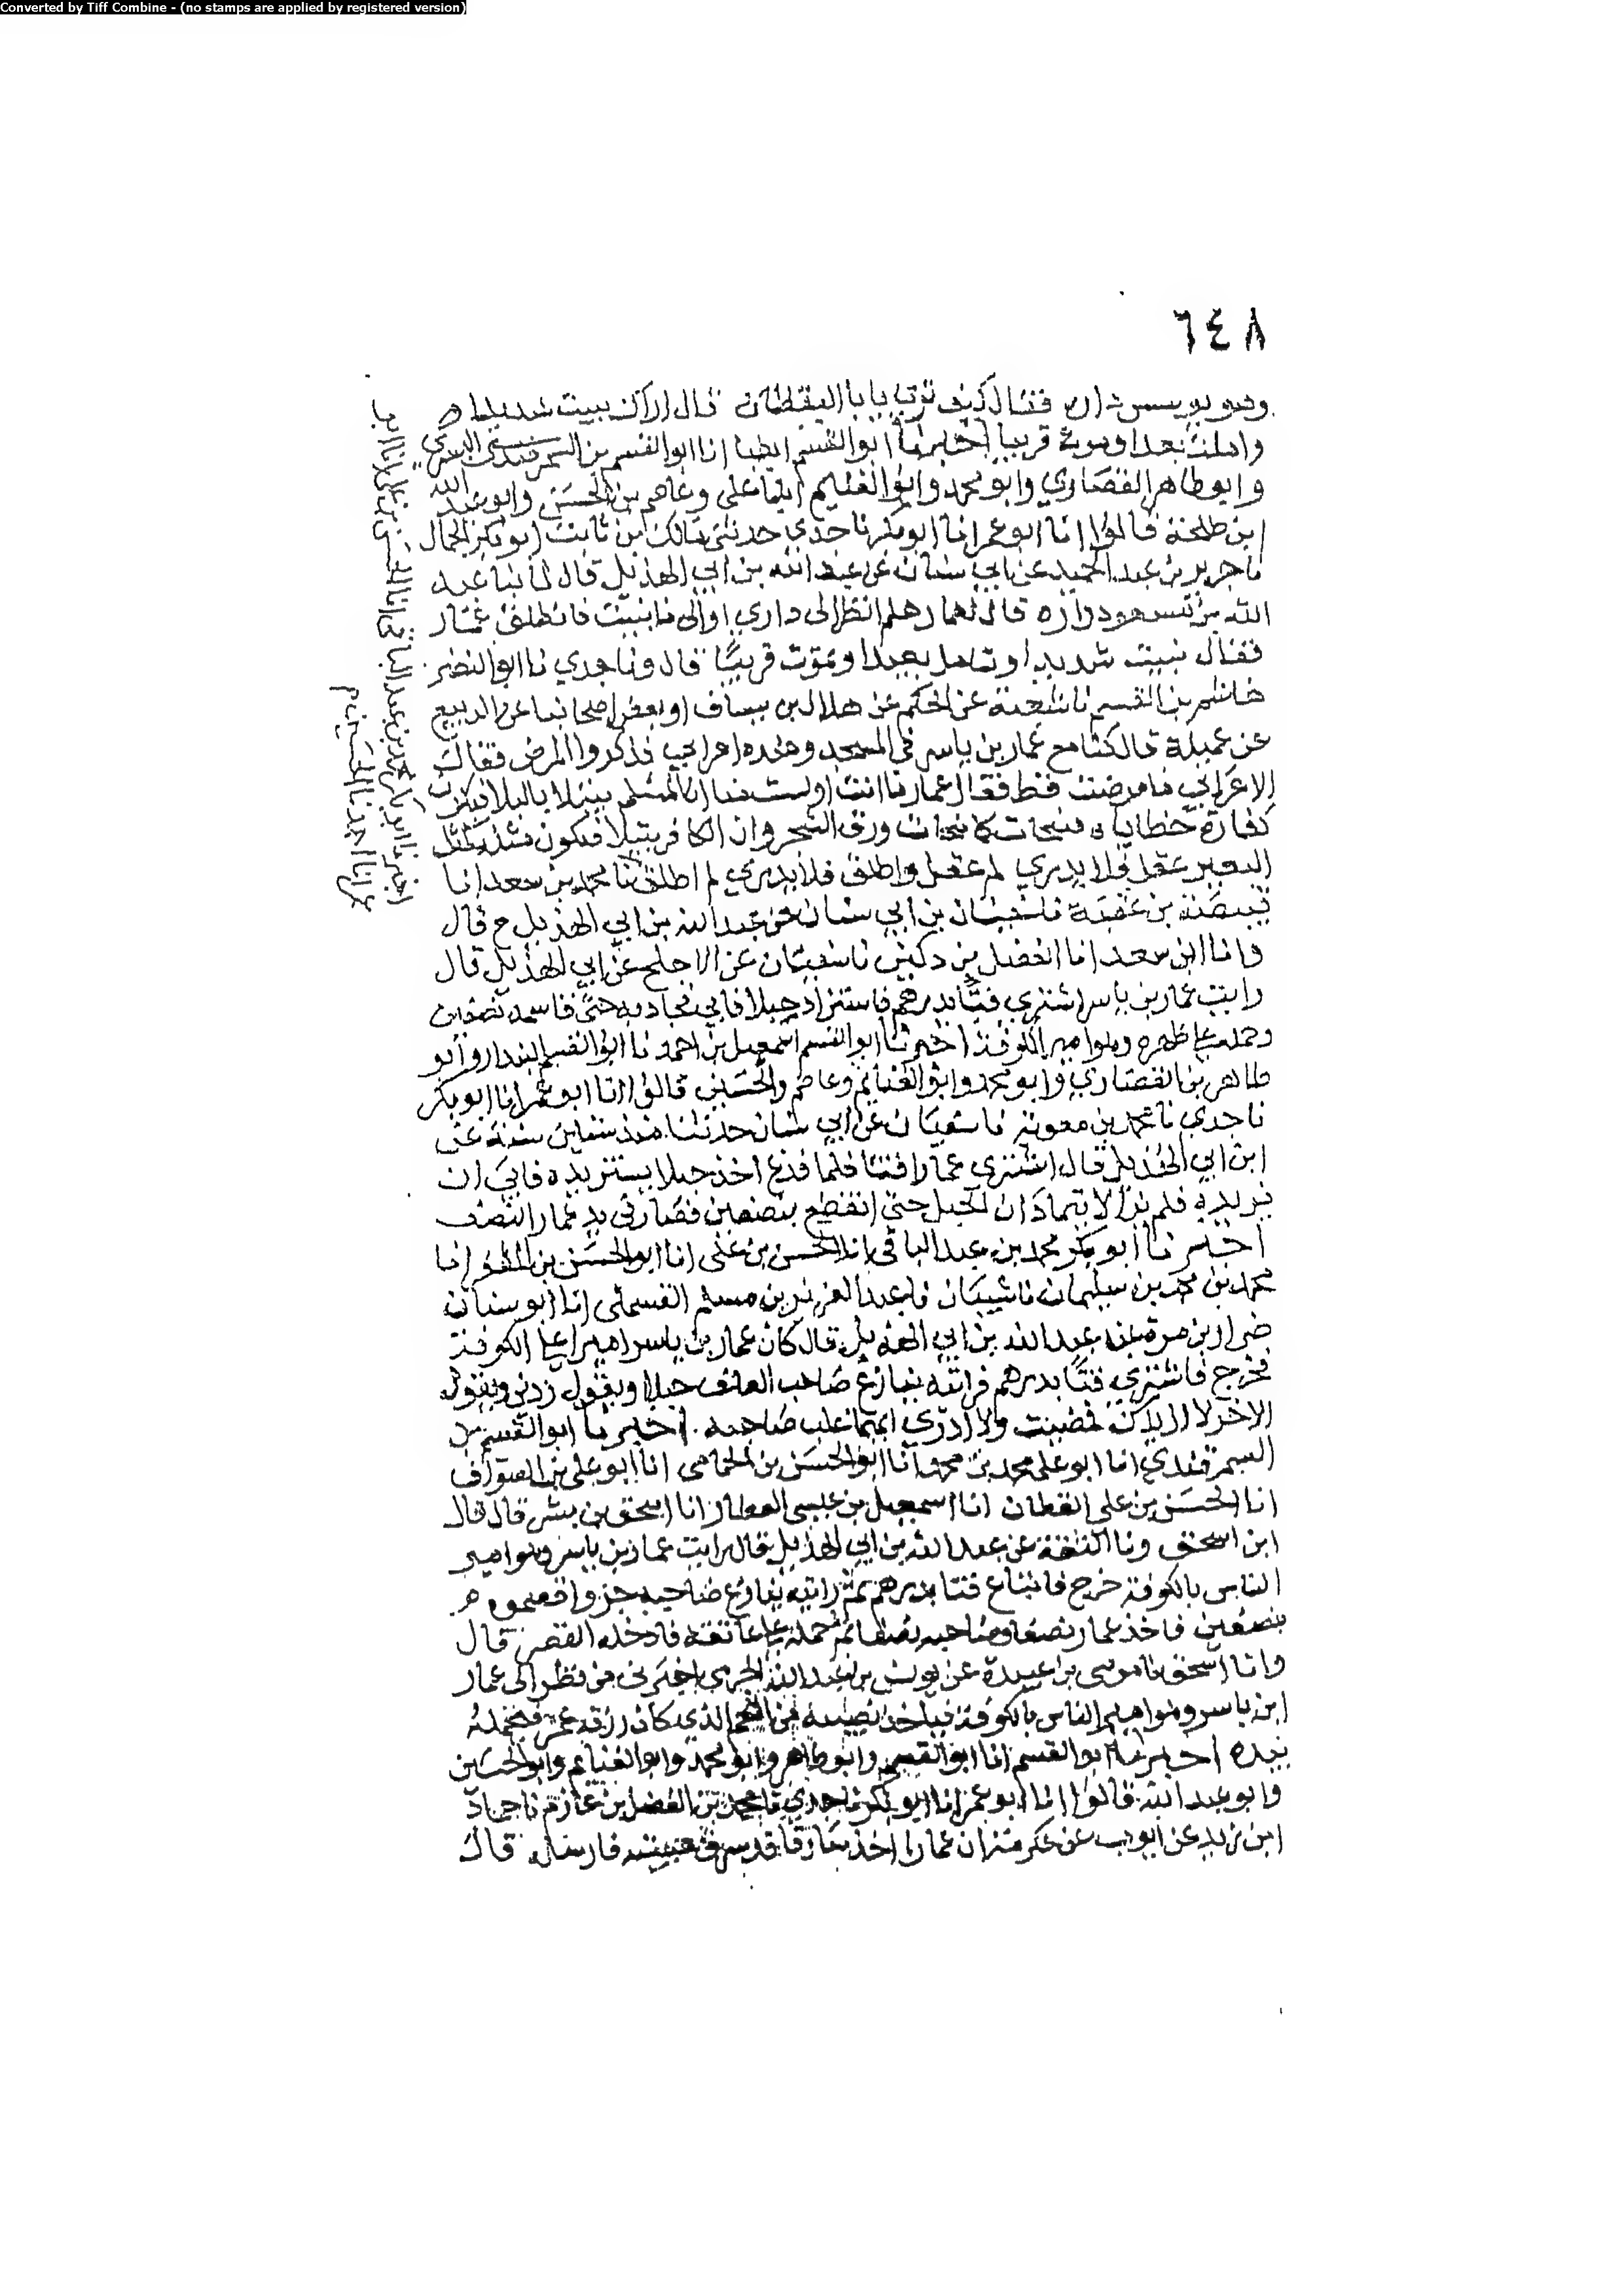 Converted by Tiff Combine - (no stamps are applied by registered version)
٦٤٨
فقال كيف ترى يا با اليقظان قال اراك بنيت شديدا
واملت بعدا وموتة قريبا اخبرنا ابو القسم ايضا انا ابو القسم بن السمرقندي البسري
وابو طاهر القصاري وابو محمد وابو الغنايم ابنا علي وعاصم بن الحسن وابو عبد الله
ابن طلحة قالوا انا ابو عمر انا ابو بكر نا جدي حدثني ثابت ابو بكر الجمال
نا جرير بن عبد الحميد عن ابي سنان عن عبد الله بن ابي الهذيل قال لما بنا عبد
الله بن مسعود داره قال لعمار هلم انظر الى داري او الى ما بنيت فانطلق عمار
فقال بنيت شديدا وتامل بعيدا وتموت قريبا قال ونا جدي نا ابو النضر
هاشم بن القسم نا شعبة عن الحكم عن هلال بن يساف او بعض اصحابنا عن الربيع
عن عميلة قال كنا مع عمار بن ياسر في المسجد وعنده اعرابي فذكروا المرض فقال
الاعرابي ما مرضت قط فقال عمار ما انت او لست منا ان المسلم يبتلا بالبلا فيكون
كفارة خطاياه فتحات كما تحات ورق الشجر وان الكافر يبتلا فيكون مثله كمثل
البعير عقل فلا يدري لم عقل واطلق فلا يدري لم اطلق نا محمد بن سعد انا
قبيصة بن عقبة نا سفيان بن ابي سنان عن عبد الله بن ابي الهذيل ح قال
وانا ابن سعد انا الفضل بن دكين نا سفيان عن الاجلح عن ابي الهذيل قال
رايت عمار بن ياسر اشترى قتا بدرهم فاستزاد حبلا فابى فجاذبه حتى قاسمه نصفين
وحمله على ظهره وهو امير الكوفة اخبرنا ابو القسم اسمعيل بن احمد نا ابو القسم البندار وابو
طاهر بن القصاري وابو محمد وابو الغنايم وعاصم والحسين قالوا انا ابو عمر انا ابو بكر
نا جدي نا محمد بن معوية نا سفيان عن ابي سنان حدثنا منذ ستين سنة عن
ابن ابي الهذيل قال اشترى عمار قتا فلما فرغ اخذ حبلا يستزيده فابى ان
يزيده فلم يزالا يتماذان الحبل حتى انقطع بنصفين فصار في يد عمار النصف
اخبرنا ابو بكر محمد بن عبد الباقي انا الحسن بن علي انا ابو الحسن بن المظفر انا
محمد بن محمد بن سليمان نا شيبان نا عبد العزيز بن مسلم القسملي انا ابو سنان
ضرار بن مرة عن عبد الله بن ابي الهذيل قال كان عمار بن ياسر اميرا على الكوفة
فخرج فاشترى قتا بدرهم فرايته ينازع صاحب العلف حبلا ويقول زدني ويقول
الاخر لا ازيدك فمضيت ولا ادري ايهما غلب صاحبه . اخبرنا ابو القسم بن
السمرقندي انا ابو علي محمد بن محمد انا ابو الحسن بن الحمامي انا ابو علي بن الصواف
انا الحسن بن علي القطان انا اسمعيل بن عيسى العطار انا اسحق بن بشر قال قال
ابن اسحق ونا الثقة عن عبد الله بن ابي الهذيل قال رايت عمار بن ياسر وهو امير
الناس بالكوفة خرج فابتاع قتا بدرهم ثم رايته ينازع صاحبه
بنصفين فاخذ عمار نصفا وصاحبه نصفا ثم حمله على عاتقه فادخله القصر قال
وانا اسحق نا موسى بن عبيدة عن يونس بن عبد الله الجرمي اخبرني من نظر الى عمار
ابن ياسر وهو امير الناس بالكوفة فياخذ نصيبه من اللحم الذي كان رزقه عمر فيحمله
بيده اخبرنا ابو القسم انا ابو القسم وابو طاهر وابو محمد وابو الغنايم وابو الحسين
وابو عبد الله قالوا انا ابو عمر انا ابو بكر نا جدي نا محمد بن الفضل بن عارم نا حماد
ابن زيد عن ايوب عن عكرمة ان عمارا اخذ سارقا قد سرق عيبته فارسله قال